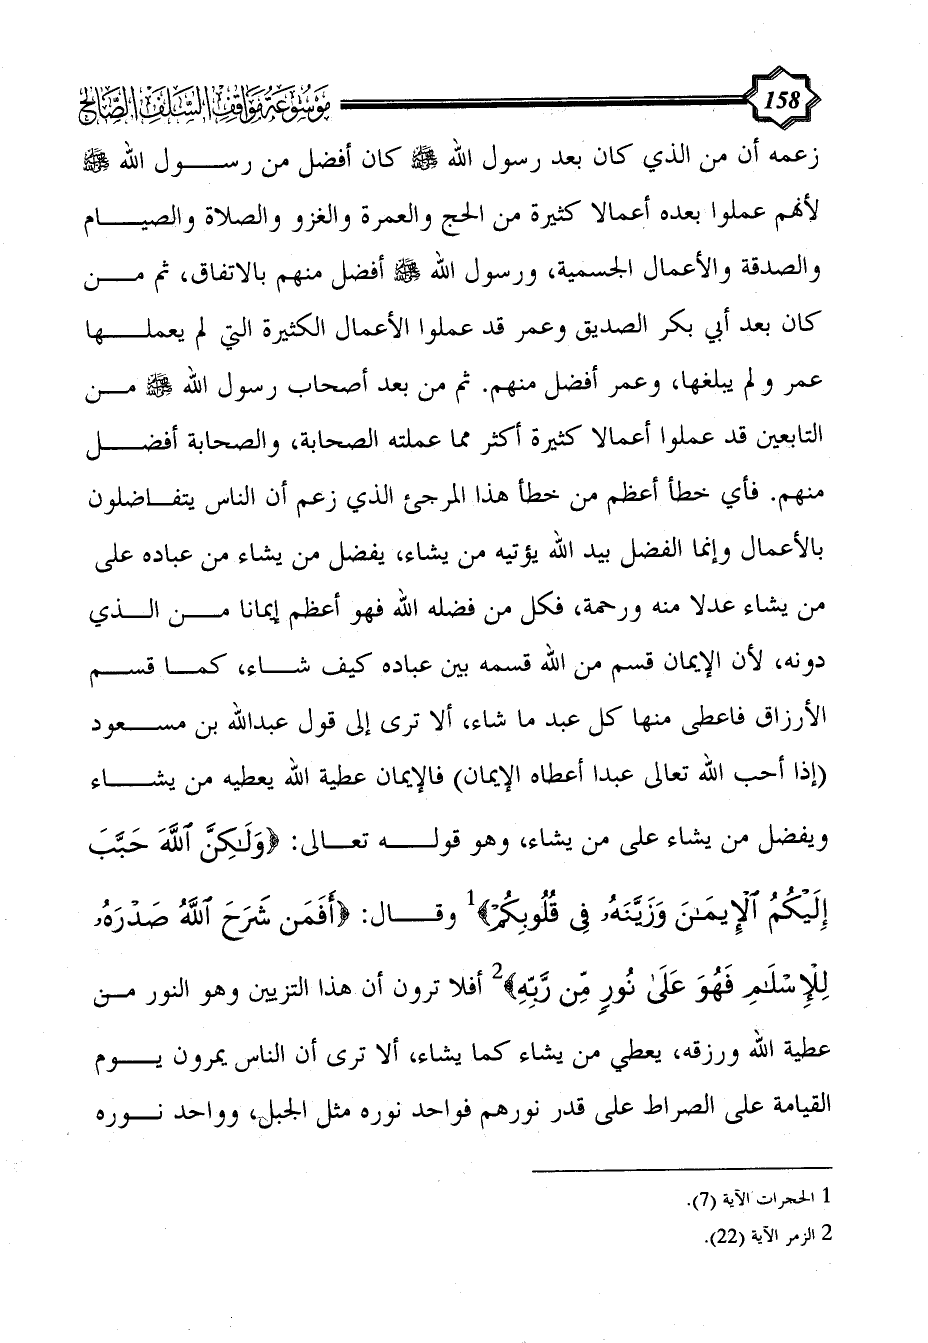 158
موسوعة مواقف السلف الصالح
زعمه أن من الذي كان بعد رسول الله ﷺ كان أفضل من رسول الله ﷺ
لأنهم عملوا بعده أعمالا كثيرة من الحج والعمرة والغزو والصلاة والصيام
والصدقة والأعمال الجسمية، ورسول الله ﷺ أفضل منهم بالاتفاق، ثم من
كان بعد أبي بكر الصديق وعمر قد عملوا الأعمال الكثيرة التي لم يعملها
عمر ولم يبلغها، وعمر أفضل منهم. ثم من بعد أصحاب رسول الله ﷺ من
التابعين قد عملوا أعمالا كثيرة أكثر مما عملته الصحابة، والصحابة أفضل
منهم. فأي خطأ أعظم من خطأ هذا المرجئ الذي زعم أن الناس يتفاضلون
بالأعمال وإنما الفضل بيد الله يؤتيه من يشاء، يفضل من يشاء من عباده على
من يشاء عدلا منه ورحمة، فكل من فضله الله فهو أعظم إيمانا من الذي
دونه، لأن الإيمان قسم من الله قسمه بين عباده كيف شاء، كما قسم
الأرزاق فاعطى منها كل عبد ما شاء، ألا ترى إلى قول عبدالله بن مسعود
(إذا أحب الله تعالى عبدا أعطاه الإيمان) فالإيمان عطية الله يعطيه من يشاء
ويفضل من يشاء على من يشاء، وهو قوله تعالى: ﴿وَلَٰكِنَّ ٱللَّهَ حَبَّبَ
إِلَيْكُمُ ٱلْإِيمَٰنَ وَزَيَّنَهُۥ فِى قُلُوبِكُمْ﴾1 وقال: ﴿أَفَمَن شَرَحَ ٱللَّهُ صَدْرَهُۥ
لِلْإِسْلَٰمِ فَهُوَ عَلَىٰ نُورٍ مِّن رَّبِّهِۦ﴾2 أفلا ترون أن هذا التزيين وهو النور من
عطية الله ورزقه، يعطي من يشاء كما يشاء، ألا ترى أن الناس يمرون يوم
القيامة على الصراط على قدر نورهم فواحد نوره مثل الجبل، وواحد نوره
1 الحجرات الآية (7).
2 الزمر الآية (22).